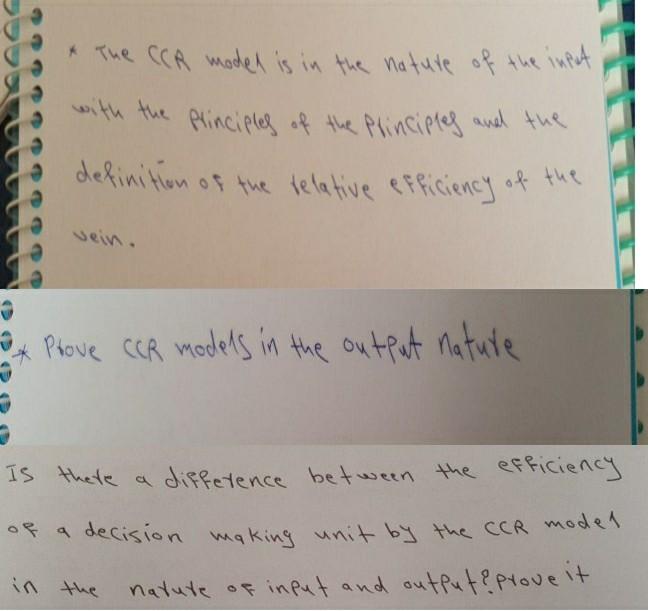 * The CCR model is in the nature of the input
with the principles of the principles and the
definition of the relative efficiency of the
vein.
* Prove CCR models in the output nature
Is there a difference between the efficiency
of a decision making unit by the CCR model
in the nature of input and output? prove it